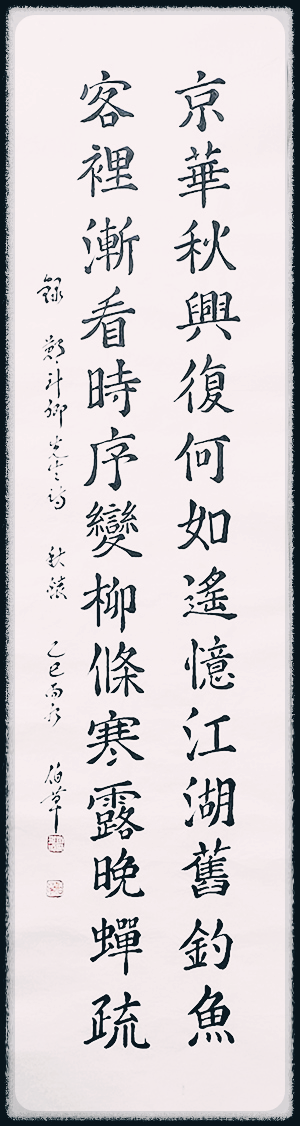 京華秋興復何如遙憶江湖舊釣魚
客裡漸看時序變柳條寒露晚蟬疏
錄 鄭斗卿先生詩 秋懷 乙巳 伯華